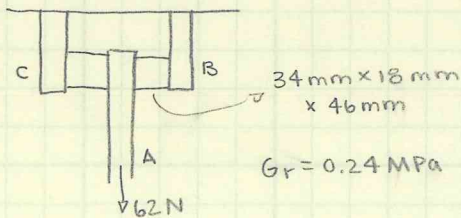 C
B
34mm × 18 mm
× 46mm
A
Gr = 0.24 MPa
62N